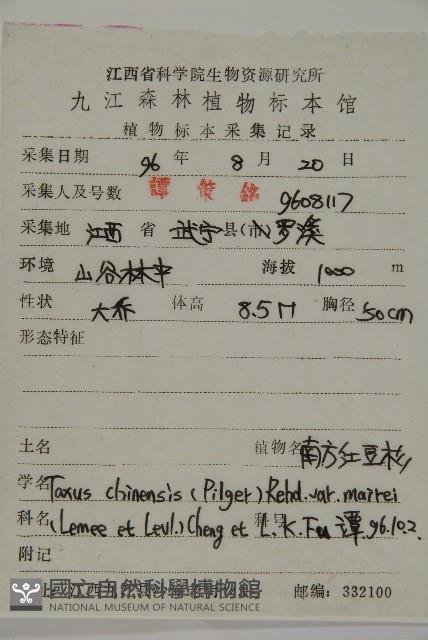 江西省科学院生物资源研究所
九江森林植物标本馆
植物标本采集记录
采集日期 96 年 8 月 20 日
采集人及号数 譚策銘 9608117
采集地 江西 省 武宁 县(市) 罗溪
环境 山谷林中 海拔 1000 m
性状 大乔 体高 8.5M 胸径 50cm
形态特征
土名 植物名 南方红豆杉
学名 Taxus chinensis (Pilger) Rehd. var. mairei
科名 (Lemee et Levl.) Cheng et L. K. Fu 科号 譚 96.10.2.
附记
國立自然科學博物館
邮编：332100
NATIONAL MUSEUM OF NATURAL SCIENCE